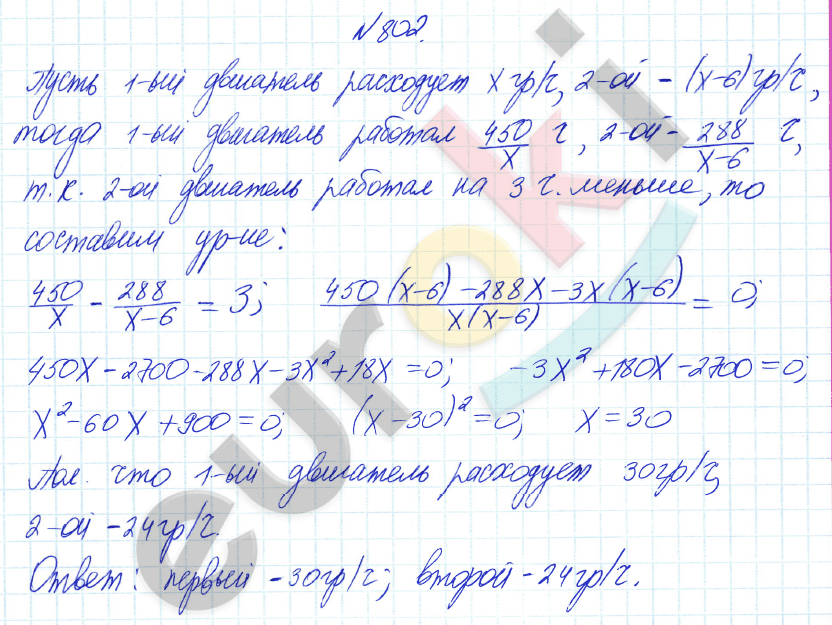 №802.
Пусть 1-ый двигатель расходует x гр/ч, 2-ой - (x-6) гр/ч,
тогда 1-ый двигатель работал 450/x ч, 2-ой - 288/(x-6) ч,
т.к. 2-ой двигатель работал на 3 ч. меньше, то
составим ур-ие:
450/x - 288/(x-6) = 3; (450(x-6) - 288x - 3x(x-6))/(x(x-6)) = 0;
450x - 2700 - 288x - 3x² + 18x = 0; -3x² + 180x - 2700 = 0;
x² - 60x + 900 = 0; (x - 30)² = 0; x = 30
Пол. что 1-ый двигатель расходует 30гр/ч,
2-ой - 24гр/ч.
Ответ: первый - 30гр/ч; второй - 24гр/ч.
euroki